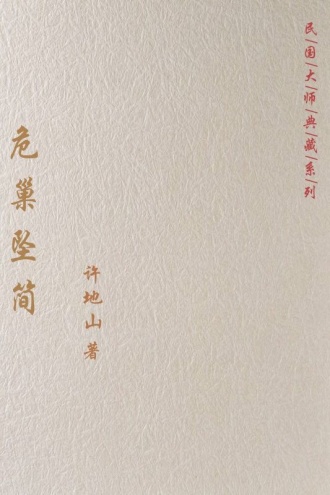 民国大师典藏系列
危巢坠简
许地山 著